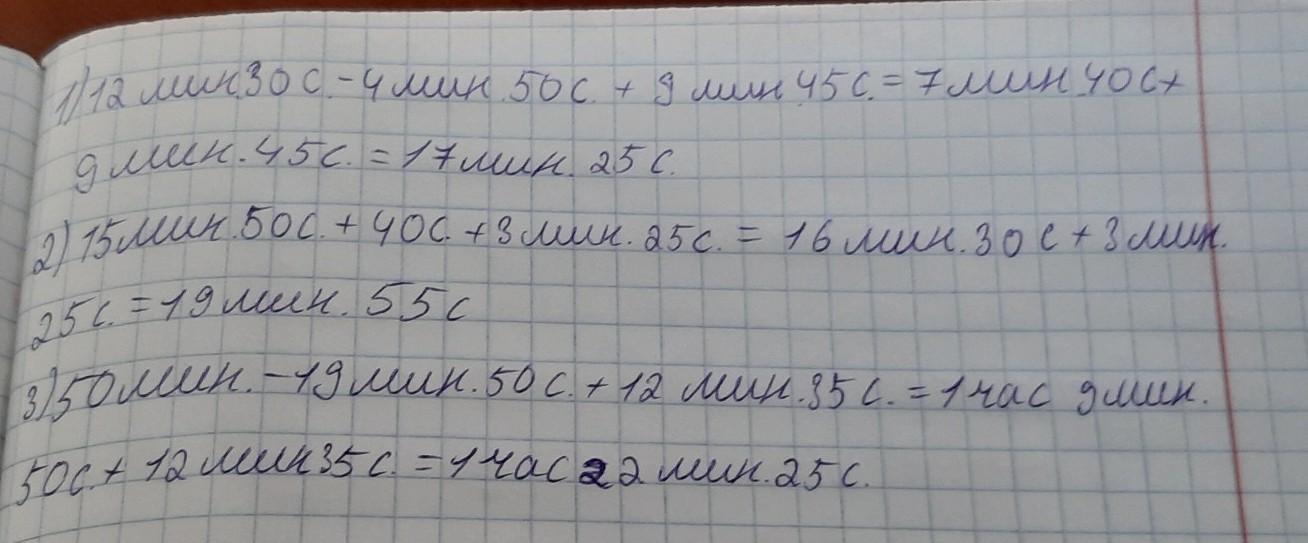 1) 12 мин. 30 с. - 4 мин. 50 с. + 9 мин. 45 с. = 7 мин. 40 с +
9 мин. 45 с. = 17 мин. 25 с.
2) 15 мин. 50 с. + 40 с. + 3 мин. 25 с. = 16 мин. 30 с + 3 мин.
25 с. = 19 мин. 55 с
3) 50 мин. - 19 мин. 50 с. + 12 мин. 35 с. = 1 час 9 мин.
50 с. + 12 мин 35 с. = 1 час 22 мин. 25 с.